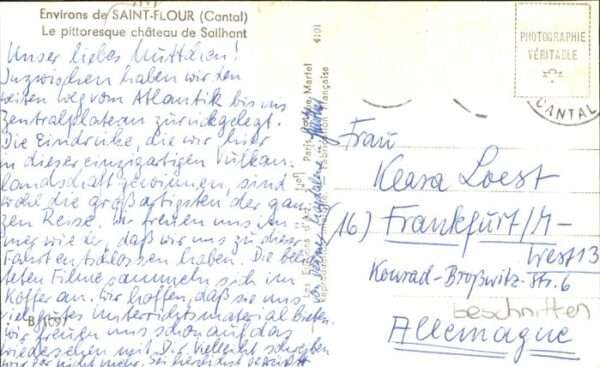 Environs de SAINT-FLOUR (Cantal)
Le pittoresque château de Sailhant
Unser liebes Muttchen!
Inzwischen haben wir den
weiten Weg vom Atlantik bis ins
Zentralplateau zurückgelegt.
Die Eindrücke, die wir hier
in dieser einzigartigen Vulkan-
landschaft gewinnen, sind
wohl die großartigsten der gan-
zen Reise. Wir freuen uns im-
mer wieder, daß wir uns zu dieser
Fahrt entschlossen haben. Die belich-
teten Filme sammeln sich im
Koffer an. Wir hoffen, daß sie uns
Unterrichtsmaterial bieten.
Wir freuen uns schon auf das
Wiedersehen mit Dir. Vielleicht schreiben
wir Dir nicht mehr, sei
B/1097
4101
Martel
Les Editions d'Art
Fabrication Française
PHOTOGRAPHIE
VÉRITABLE
CANTAL
Frau
Klara Loest
(16) Frankfurt/M-
West 13
Konrad-Broßwitz-Str. 6
beschnitten
Allemagne